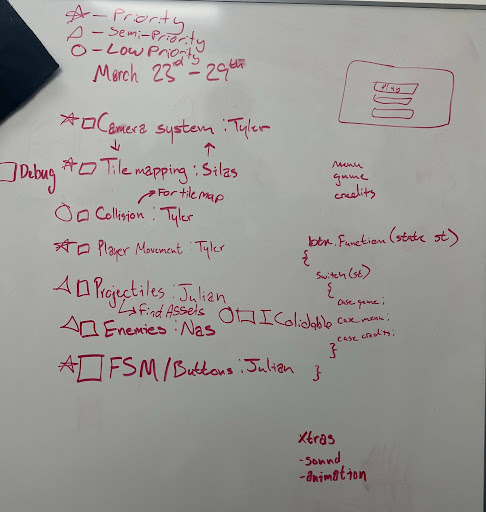 ☆ - Priority
△ - Semi-Priority
○ - Low Priority
March 23rd - 29th
Play
☆ □ Camera system : Tyler
↓ ↑
□ Debug ☆ □ Tile mapping : Silas
→ For tile map
○ □ Collision : Tyler
☆ □ Player Movement : Tyler
△ □ Projectiles : Julian
↳ Find Assets
△ □ Enemies : Nas
○ □ ICollidable
☆ □ FSM/Buttons : Julian
menu
game
credits
btn.Function(state st)
{
switch(st)
{
case game:
case menu:
case credits:
}
}
xtras
-sound
-animation